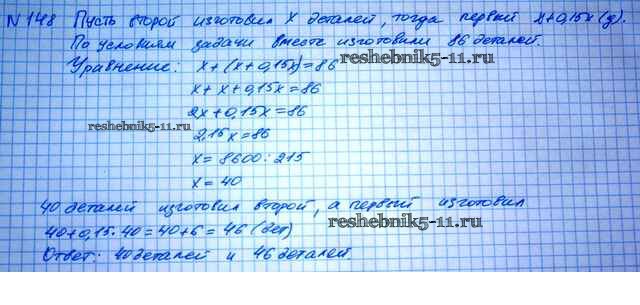 №148 Пусть второй изготовил x деталей, тогда первый x+0,15x (д).
По условию задачи вместе изготовили 86 деталей.
Уравнение: x+(x+0,15x)=86
reshebnik5-11.ru
x+x+0,15x=86
2x+0,15x=86
reshebnik5-11.ru
2,15x=86
x=8600:215
x=40
40 деталей изготовил второй, а первый изготовил
reshebnik5-11.ru
40+0,15·40=40+6=46 (дет)
Ответ: 40 деталей и 46 деталей.